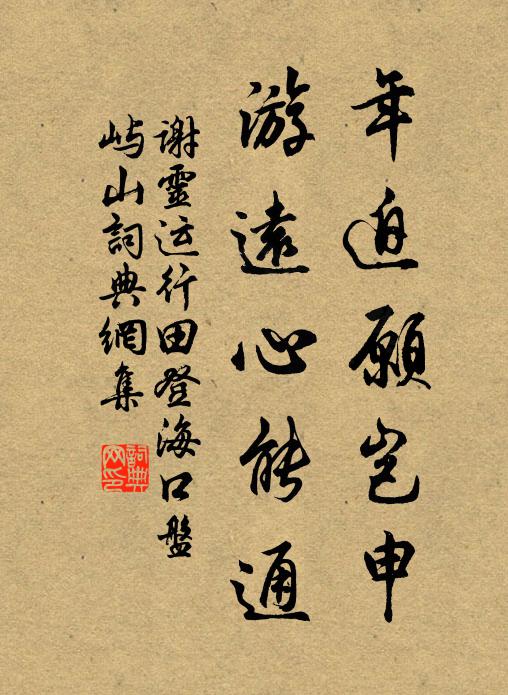 年迫願豈申
游遠心能通
謝靈运行田登海口盤
屿山詞典網集
詞典网印